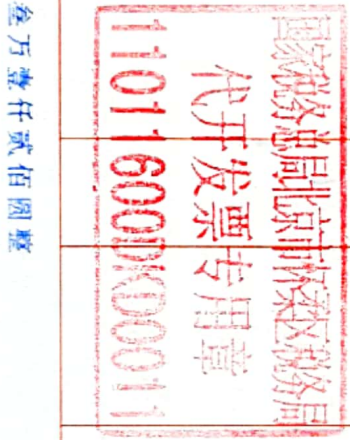 国家税务总局北京市怀柔区税务局
代开发票专用章
11011600DK00011
叁万壹仟贰佰圆整